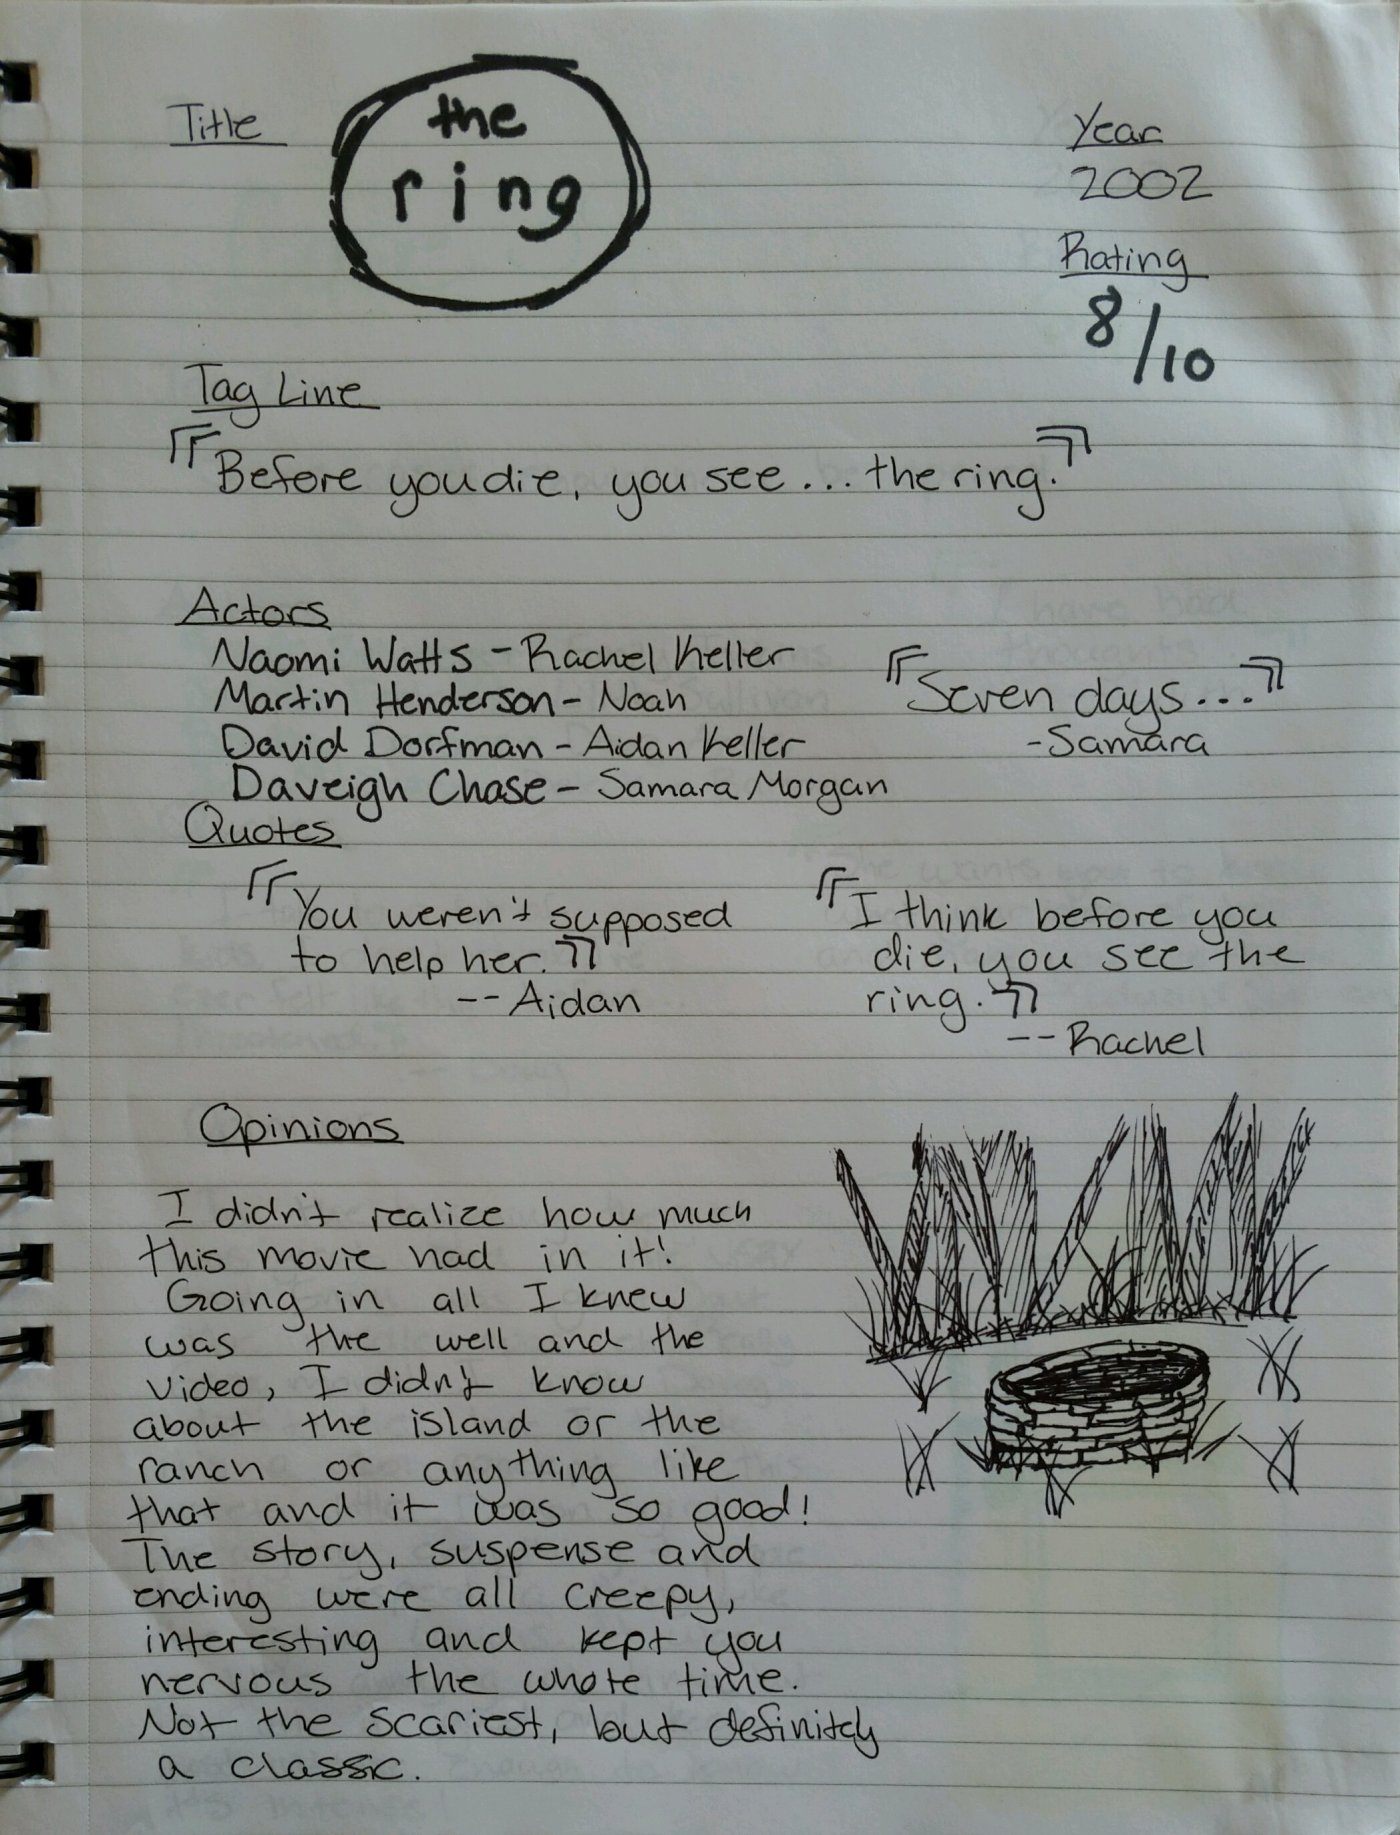 Title
the
ring
Year
2002
Rating
8/10
Tag Line
"Before you die, you see... the ring."
Actors
Naomi Watts - Rachel Keller
Martin Henderson - Noah
David Dorfman - Aidan Keller
Daveigh Chase - Samara Morgan
"Seven days..."
-Samara
Quotes
"You weren't supposed
to help her."
-- Aidan
"I think before you
die, you see the
ring."
-- Rachel
Opinions
I didn't realize how much
this movie had in it!
Going in all I knew
was the well and the
video, I didn't know
about the island or the
ranch or anything like
that and it was so good!
The story, suspense and
ending were all creepy,
interesting and kept you
nervous the whole time.
Not the scariest, but definitely
a classic.